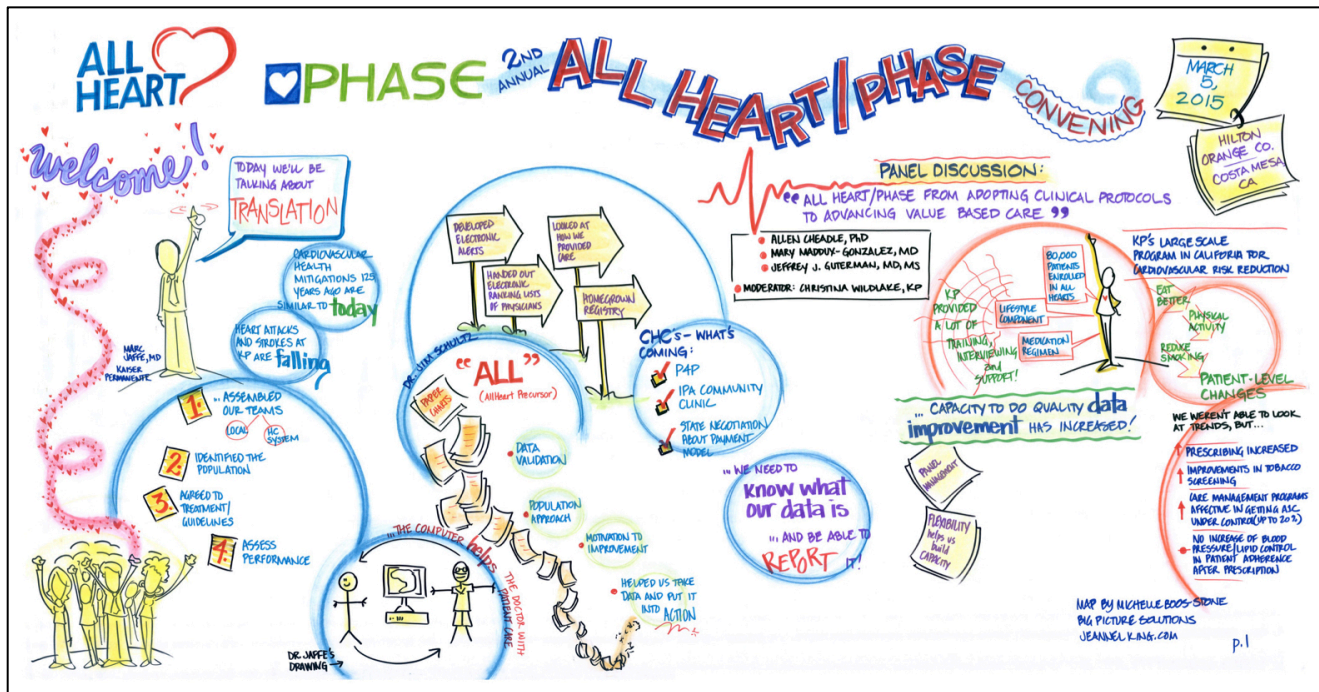 ALL
HEART
PHASE
2ND
ANNUAL
ALL HEART/PHASE
CONVENING
MARCH
5,
2015
HILTON
ORANGE CO.
COSTA MESA
CA
Welcome!
TODAY WE'LL BE
TALKING ABOUT
TRANSLATION
MARC
JAFFE, MD
KAISER
PERMANENTE
CARDIOVASCULAR
HEALTH
MITIGATIONS 125
YEARS AGO ARE
SIMILAR TO today
HEART ATTACKS
AND STROKES AT
KP ARE falling
1. ... ASSEMBLED
OUR TEAMS
LOCAL
HC
SYSTEM
2. IDENTIFIED THE
POPULATION
3. AGREED TO
TREATMENT/
GUIDELINES
4. ASSESS
PERFORMANCE
...THE COMPUTER helps THE DOCTOR WITH PATIENT CARE
DR. JAFFE'S
DRAWING →
DEVELOPED
ELECTRONIC
ALERTS
LOOKED AT
HOW WE
PROVIDED
CARE
HANDED OUT
ELECTRONIC
RANKING LISTS
OF PHYSICIANS
HOMEGROWN
REGISTRY
DR. JIM SCHULTZ
"ALL"
(AllHeart Precursor)
PAPER
CHARTS
DATA
VALIDATION
POPULATION
APPROACH
MOTIVATION TO
IMPROVEMENT
HELPED US TAKE
DATA AND PUT IT
INTO
ACTION
CHC's - WHAT'S
COMING:
P4P
IPA COMMUNITY
CLINIC
STATE NEGOTIATION
ABOUT PAYMENT
MODEL
...WE NEED TO
know what
our data is
... AND BE ABLE TO
REPORT IT!
PANEL DISCUSSION:
"ALL HEART/PHASE FROM ADOPTING CLINICAL PROTOCOLS
TO ADVANCING VALUE BASED CARE"
ALLEN CHEADLE, PHD
MARY MADDUX-GONZALEZ, MD
JEFFREY J. GUTERMAN, MD, MS
MODERATOR: CHRISTINA WILDLAKE, KP
KP PROVIDED
A LOT OF
TRAINING,
INTERVIEWING
and
SUPPORT!
80,000
PATIENTS
ENROLLED
IN ALL
HEARTS
LIFESTYLE
COMPONENT
MEDICATION
REGIMEN
KP'S LARGE SCALE
PROGRAM IN CALIFORIA FOR
CARDIOVASCULAR RISK REDUCTION
EAT
BETTER
PHYSICAL
ACTIVITY
REDUCE
SMOKING
PATIENT-LEVEL
CHANGES
... CAPACITY TO DO QUALITY data
improvement HAS INCREASED!
PANEL
MANAGEMENT
FLEXIBILITY
helps us
build
CAPACITY
WE WEREN'T ABLE TO LOOK
AT TRENDS, BUT...
PRESCRIBING INCREASED
IMPROVEMENTS IN TOBACCO
SCREENING
CARE MANAGEMENT PROGRAMS
AFFECTIVE IN GETTING A1C
UNDER CONTROL (UP TO 20%)
NO INCREASE OF BLOOD
PRESSURE/LIPID CONTROL
IN PATIENT ADHERENCE
AFTER PRESCRIPTION
MAP BY MICHELLE BOOS-STONE
BIG PICTURE SOLUTIONS
JEANNELKING.COM
p.1